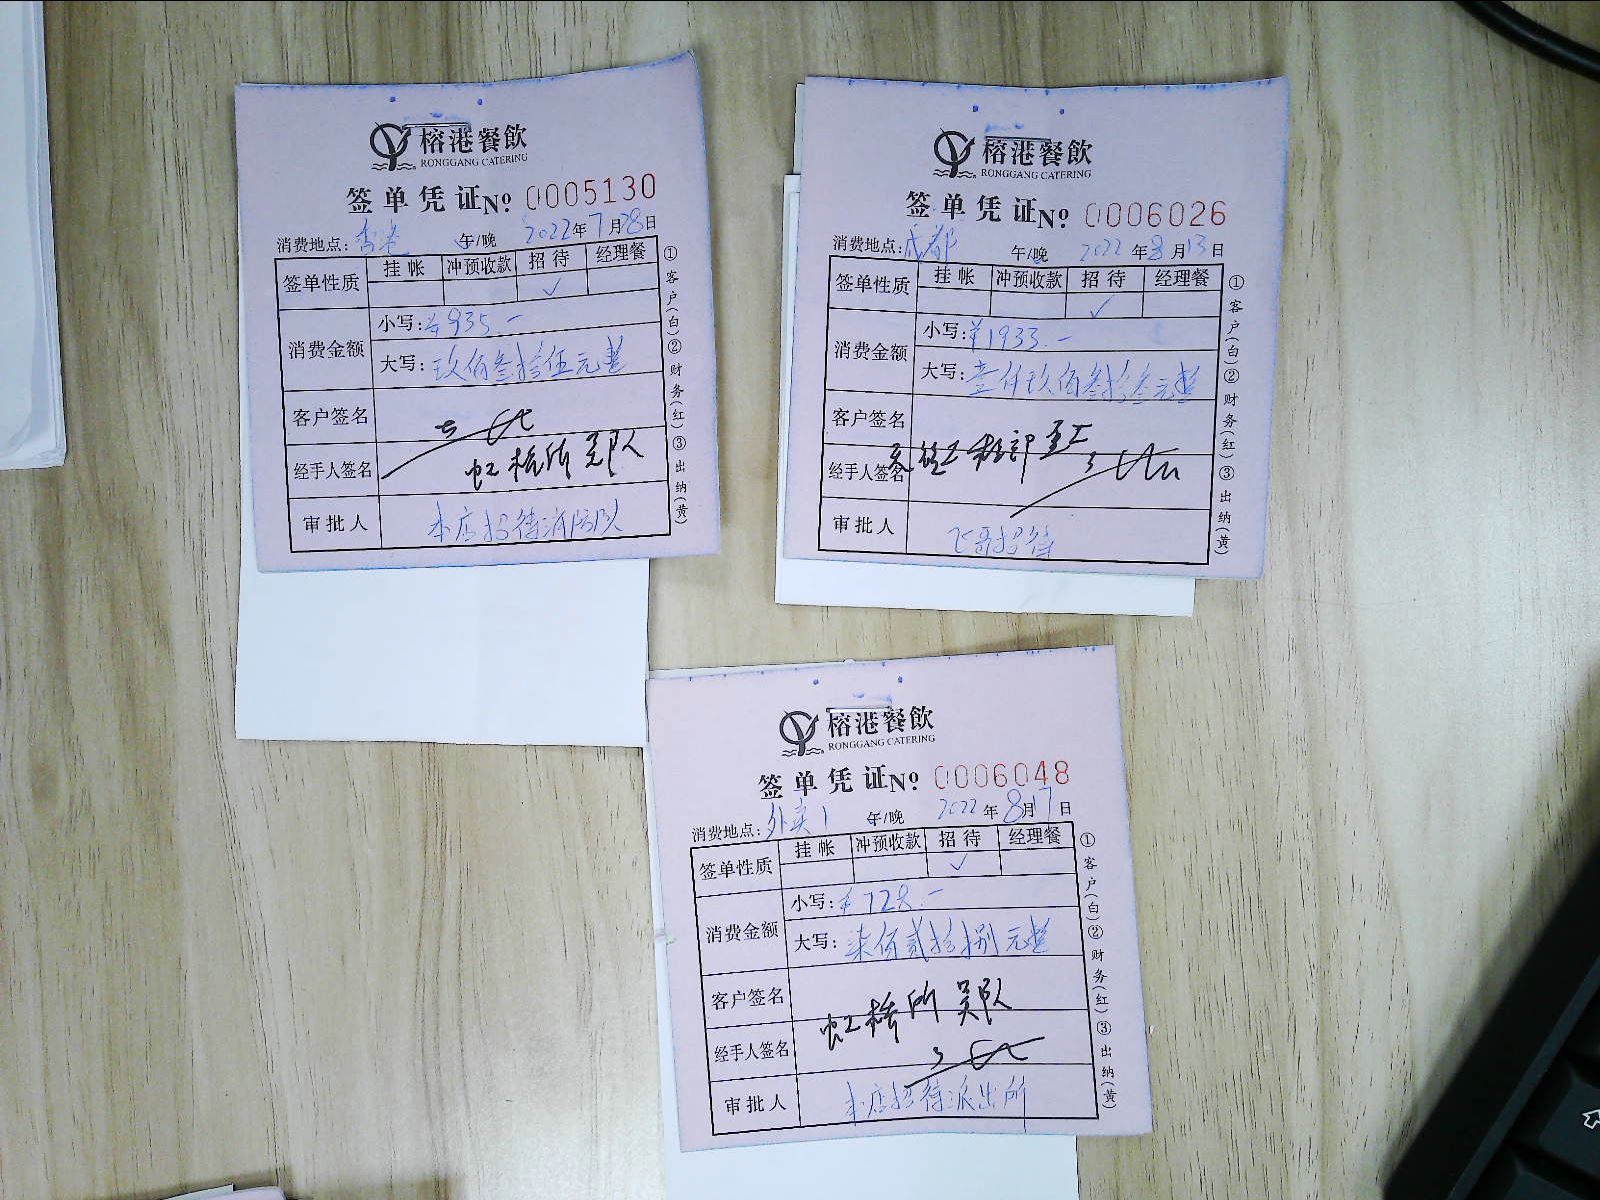 榕港餐飲
RONGGANG CATERING
签单凭证No 0005130
消费地点: 香港 午/晚 2022年7月28日
签单性质 挂帐 冲预收款 招待 经理餐
✓
消费金额 小写: ¥935.—
大写: 玖佰叁拾伍元整
客户签名
经手人签名 虹桥所
审批人 本店招待消防队
①客户(白)②财务(红)③出纳(黄)
榕港餐飲
RONGGANG CATERING
签单凭证No 0006026
消费地点: 成都 午/晚 2022年8月13日
签单性质 挂帐 冲预收款 招待 经理餐
✓
消费金额 小写: ¥1933.—
大写: 壹仟玖佰叁拾叁元整
客户签名
经手人签名 工程部
审批人 飞哥招待
①客户(白)②财务(红)③出纳(黄)
榕港餐飲
RONGGANG CATERING
签单凭证No 0006048
消费地点: 外卖1 午/晚 2022年8月17日
签单性质 挂帐 冲预收款 招待 经理餐
✓
消费金额 小写: ¥728.—
大写: 柒佰贰拾捌元整
客户签名 虹桥所 吴队
经手人签名
审批人 本店招待派出所
①客户(白)②财务(红)③出纳(黄)